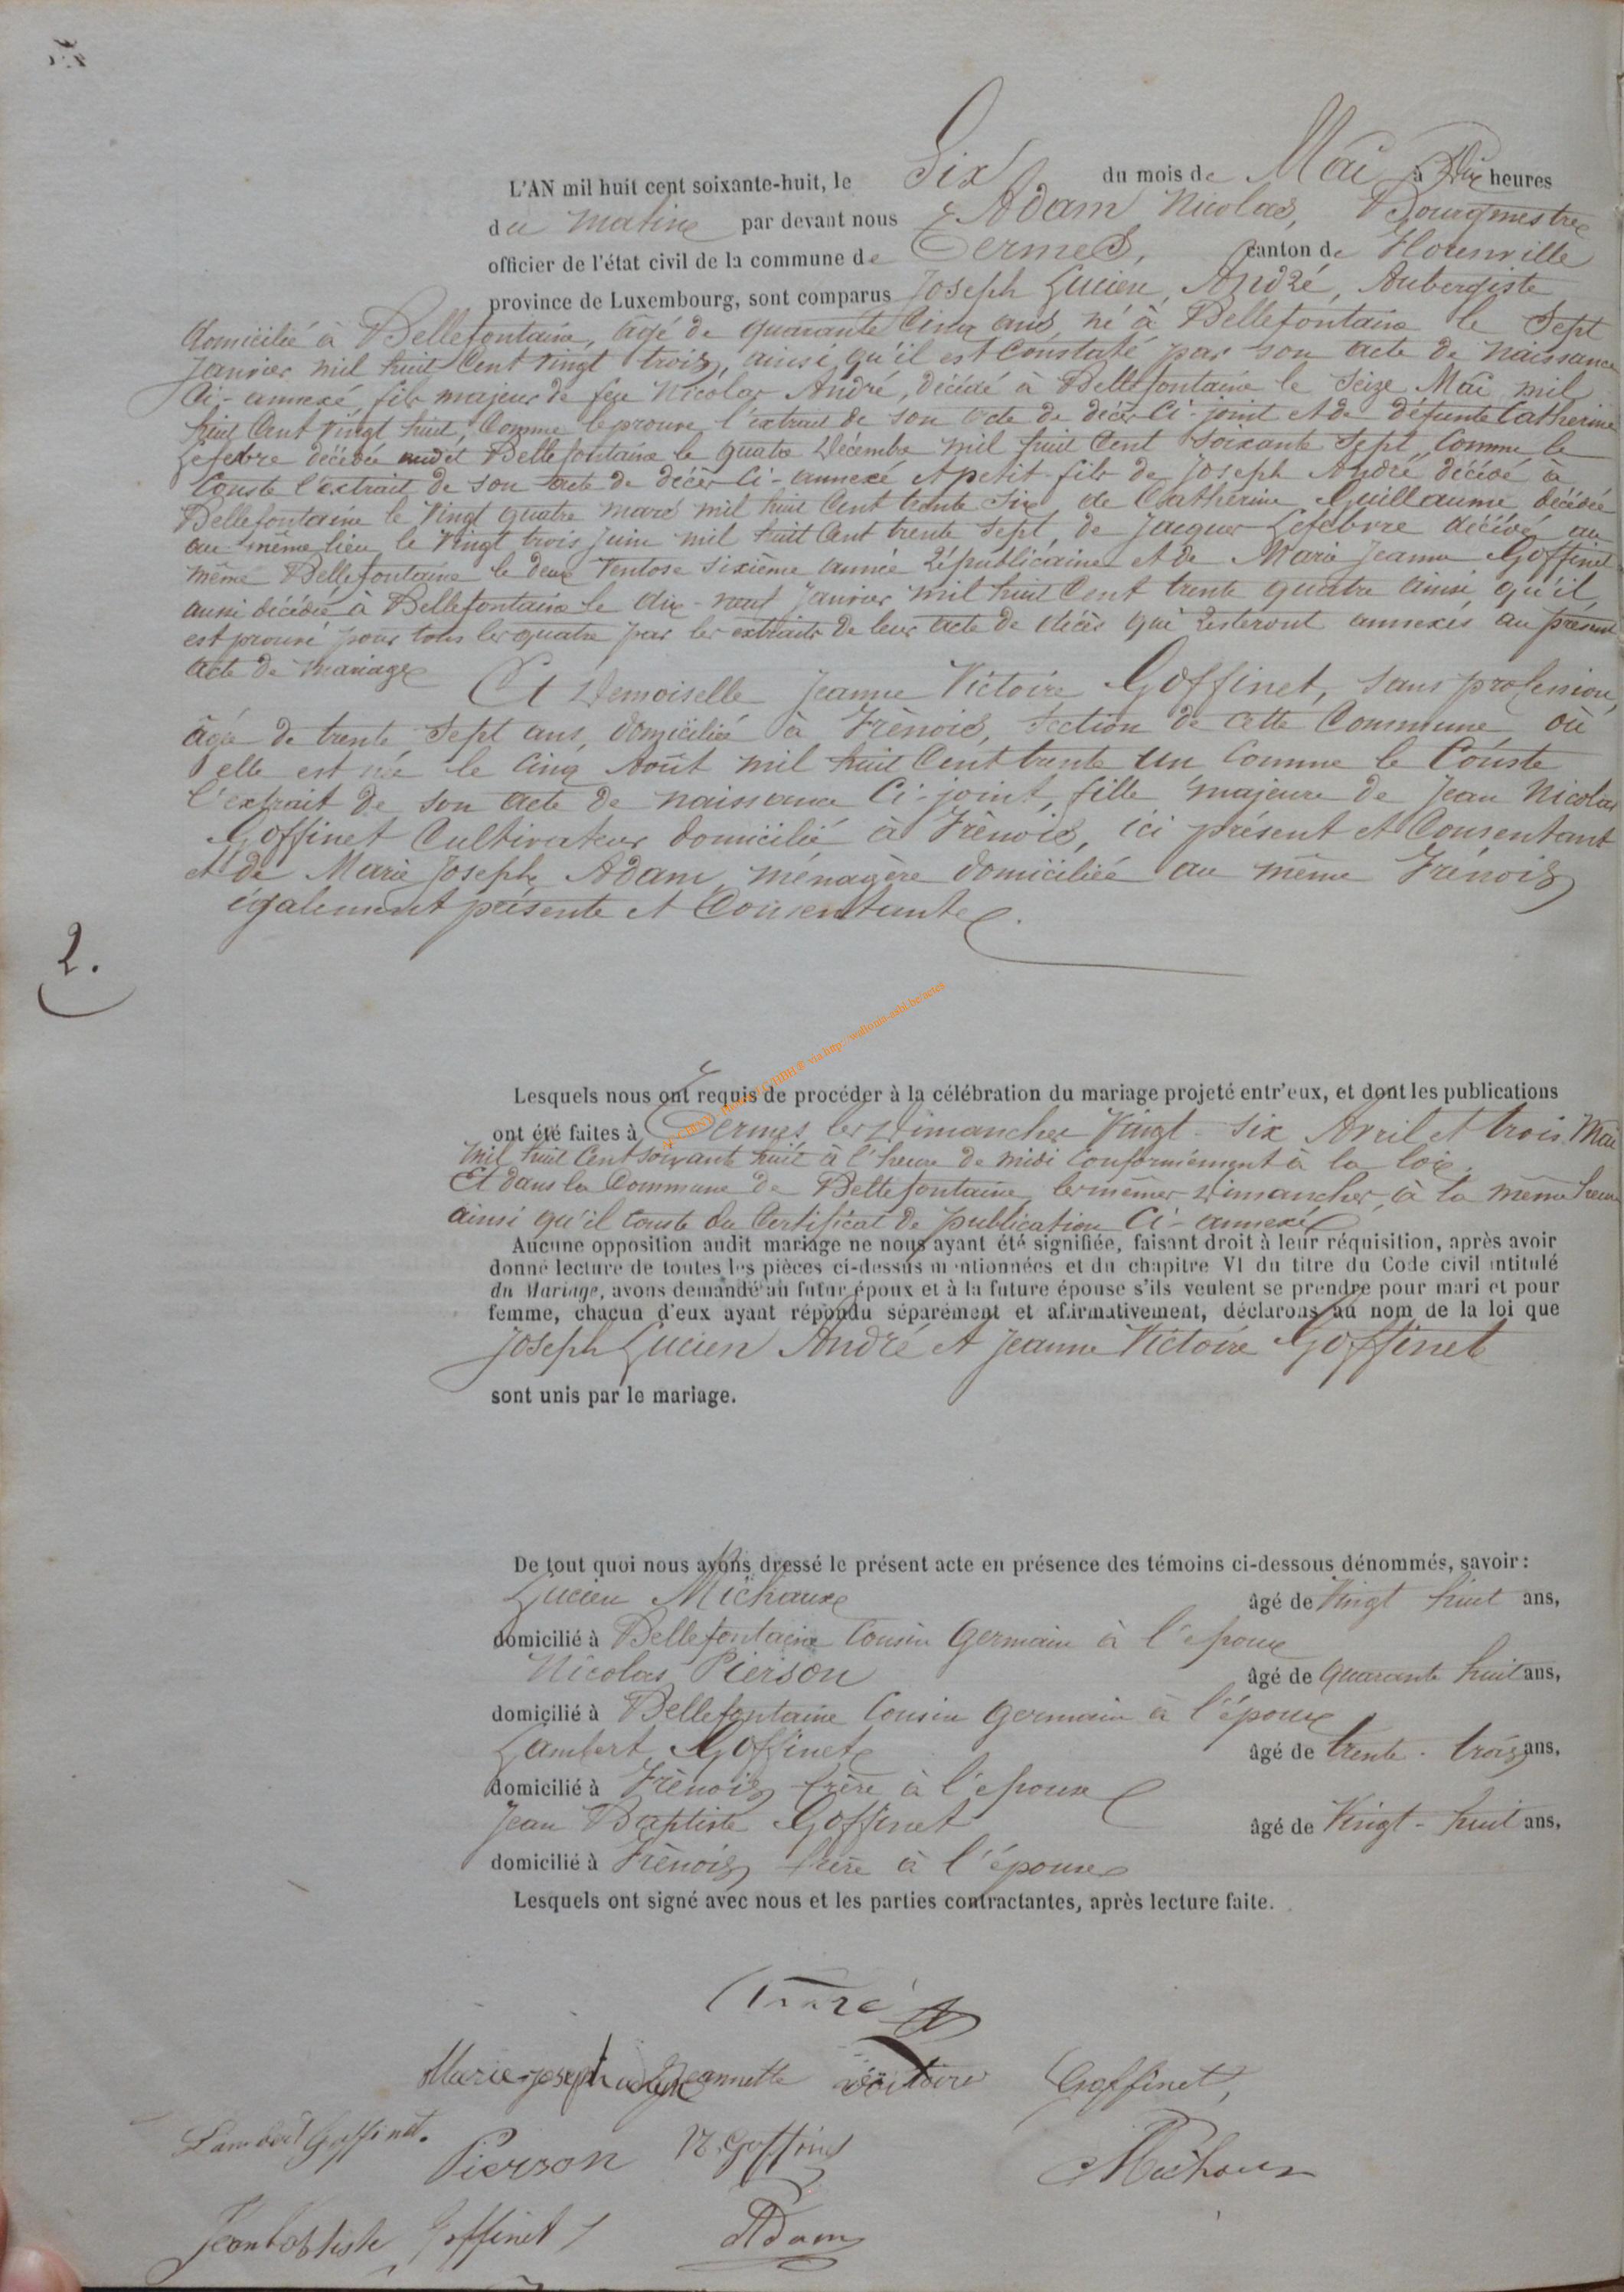 L'AN mil huit cent soixante-huit, le Six du mois de Mai à Dix heures
du matin par devant nous Adam Nicolas, Bourgmestre
officier de l'état civil de la commune de Termes, canton de Florenville
province de Luxembourg, sont comparus Joseph Lucien, André, Aubergiste
domicilié à Bellefontaine, âgé de quarante cinq ans, né à Bellefontaine le Sept
Janvier mil huit Cent vingt trois, ainsi qu'il est Constaté par son acte de naissance
Ci-annexé fils majeur de feu Nicolas André, décédé à Bellefontaine le Seize Mai mil
huit Cent vingt huit, Comme le prouve l'extrait de son acte de décès Ci-joint et de défunte Catherine
Lefebvre décédée audit Bellefontaine le quatre Décembre mil huit Cent soixante Sept, Comme le
Conste l'extrait de son acte de décès Ci-annexé et petit-fils de Joseph André décédé à
Bellefontaine le Vingt quatre mars mil huit Cent trente Six, de Catherine Guillaume décédée
au même lieu le Vingt trois Juin mil huit Cent trente Sept, de Jacques Lefebvre décédé au
même Bellefontaine le deux Ventose Sixième année Républicaine et de Marie Jeanne Goffinet
aussi décédée à Bellefontaine le dix-neuf Janvier mil huit Cent trente quatre ainsi qu'il
est prouvé pour tous les quatre par les extraits de leur acte de décès qui resteront annexés au présent
acte de mariage
Et Demoiselle Jeanne Victoire Goffinet, Sans profession,
âgée de trente Sept ans, domiciliée à Frènois, Section de cette Commune où
elle est née le Cinq Août mil huit Cent trente un Comme le Conste
l'extrait de son acte de naissance Ci-joint, fille majeure de Jean Nicolas
Goffinet Cultivateur domicilié à Frènois, ici présent et Consentant
et de Marie Joseph Adam ménagère domiciliée au même Frénois
également présente et Consentante.
2.
Lesquels nous ont requis de procéder à la célébration du mariage projeté entr'eux, et dont les publications
ont été faites à Termes les Dimanches Vingt-Six Avril et trois Mai
mil huit Cent soixante huit à l'heure de midi Conformément à la loi.
Et dans la Commune de Bellefontaine les mêmes Dimanches, à la même heure
ainsi qu'il Conste du Certificat de publication Ci-annexé
Aucune opposition audit mariage ne nous ayant été signifiée, faisant droit à leur réquisition, après avoir
donné lecture de toutes les pièces ci-dessus mentionnées et du chapitre VI du titre du Code civil intitulé
du Mariage, avons demandé au futur époux et à la future épouse s'ils veulent se prendre pour mari et pour
femme, chacun d'eux ayant répondu séparément et affirmativement, déclarons au nom de la loi que
Joseph Lucien André et Jeanne Victoire Goffinet
sont unis par le mariage.
De tout quoi nous avons dressé le présent acte en présence des témoins ci-dessous dénommés, savoir :
Lucien Michaux âgé de Vingt huit ans,
domicilié à Bellefontaine Cousin Germain à l'époux
Nicolas Pierson âgé de quarante huit ans,
domicilié à Bellefontaine Cousin Germain à l'époux
Lambert Goffinet âgé de trente-trois ans,
domicilié à Frènois frère à l'epouse
Jean Baptiste Goffinet âgé de Vingt-huit ans,
domicilié à Frènois frère à l'épouse
Lesquels ont signé avec nous et les parties contractantes, après lecture faite.
André
Marie joseph adam Jeannette victoire Goffinet,
Lambert Goffinet. Pierson N. Goffinet Michaux
Jean batiste Goffinet Adam